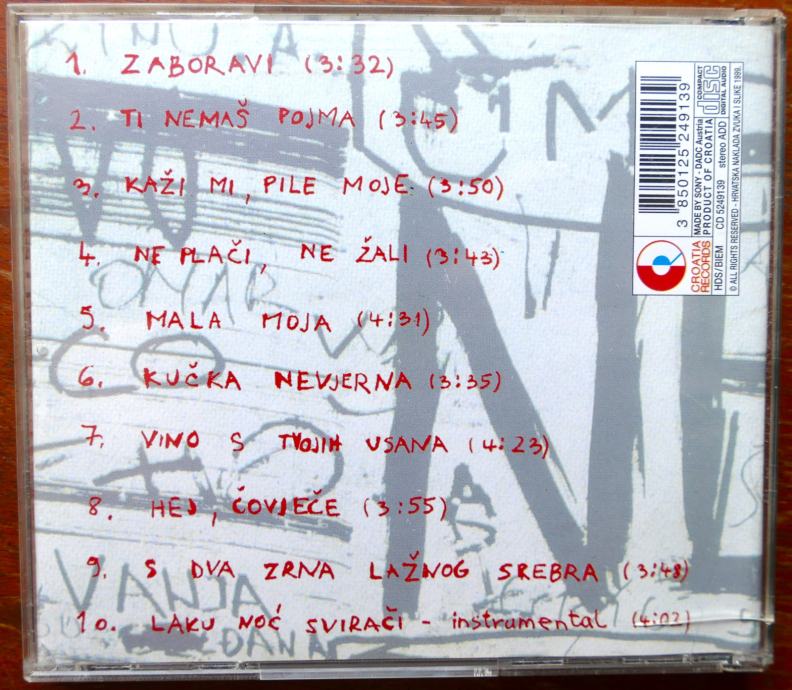 1. ZABORAVI (3:32)
2. TI NEMAŠ POJMA (3:45)
3. KAŽI MI, PILE MOJE (3:50)
4. NE PLAČI, NE ŽALI (3:43)
5. MALA MOJA (4:31)
6. KUČKA NEVJERNA (3:35)
7. VINO S TVOJIH USANA (4:23)
8. HEJ, ČOVJEČE (3:55)
9. S DVA ZRNA LAŽNOG SREBRA (3:48)
10. LAKU NOĆ SVIRAČI - instrumental (4:02)
3 850125 249139
COMPACT
disc
DIGITAL AUDIO
MADE BY SONY - DADC Austria
PRODUCT OF CROATIA
CROATIA
RECORDS
HDS/BIEM CD 5249139 stereo ADD
© ALL RIGHTS RESERVED - HRVATSKA NAKLADA ZVUKA I SLIKE 1999.
VANJA
ĐANA